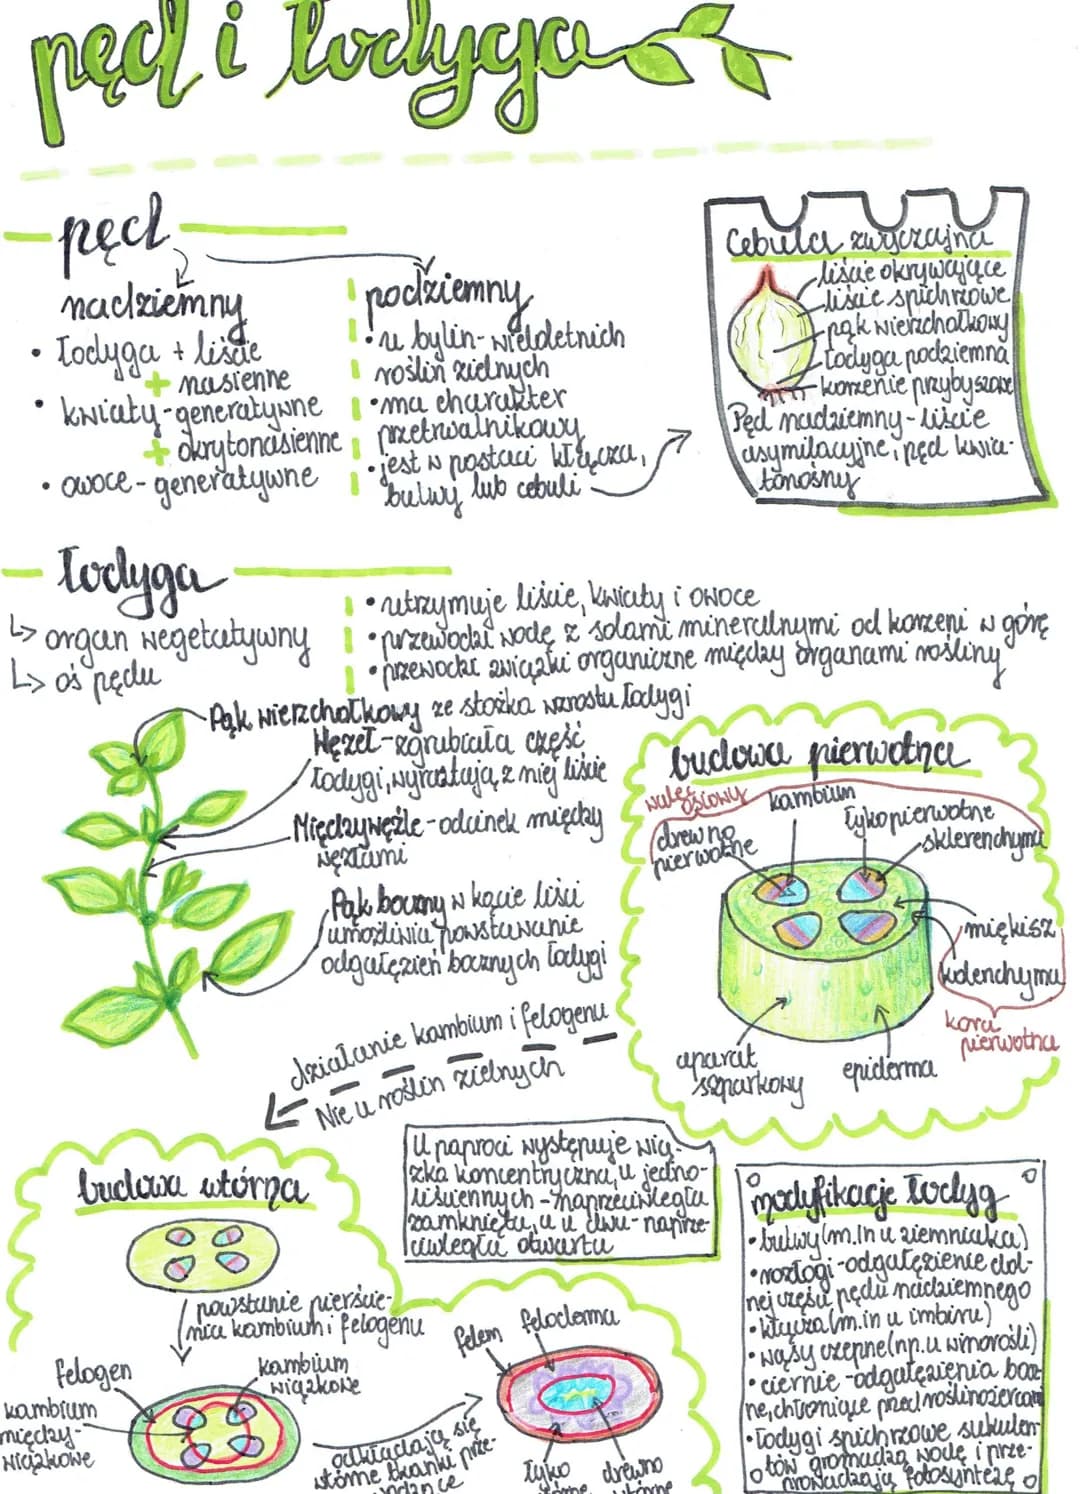 pęd i łodyga
pęd
nadziemny
• łodyga + liście
+ nasienne
• kwiaty - generatywne
+ okrytonasienne
• owoce - generatywne
podziemny
• u bylin - wieloletnich
roślin zielnych
• ma charakter
przetrwalnikowy
• jest w postaci kłącza,
bulwy lub cebuli
Cebula zwyczajna
liście okrywające
liście spichrzowe
pąk wierzchołkowy
łodyga podziemna
korzenie przybyszowe
Pęd nadziemny - liście
asymilacyjne, pęd kwia-
tonośny
łodyga
↳ organ wegetatywny
↳ oś pędu
• utrzymuje liście, kwiaty i owoce
• przewodzi wodę z solami mineralnymi od korzeni w górę
• przewodzi związki organiczne między organami rośliny
Pąk wierzchołkowy ze stożka wzrostu łodygi
Węzeł - zgrubiała część
łodygi, wyrastają z niej liście
Międzywęźle - odcinek między
węzłami
Pąk boczny w kącie liści
umożliwia powstawanie
odgałęzień bocznych łodygi
budowa pierwotna
walec osiowy
kambium
drewno
pierwotne
łyko pierwotne
sklerenchyma
miękisz
kolenchyma
kora
pierwotna
aparat
szparkowy
epiderma
działanie kambium i felogenu
Nie u roślin zielnych
budowa wtórna
powstanie pierście-
nia kambium i felogenu
felogen
kambium
wiązkowe
kambium
między-
wiązkowe
odkładają się
wtórne tkanki prze-
wodzące
felem
feloderma
łyko
wtórne
drewno
wtórne
U paproci występuje wią-
zka koncentryczna, u jedno-
liściennych - naprzeciwległa
zamknięta, u u dwu - naprze-
ciwległa otwarta
modyfikacje łodyg
• bulwy (m.in u ziemniaka)
• rozłogi - odgałęzienie dol-
nej części pędu nadziemnego
• kłącza (m.in u imbiru)
• wąsy czepne (np. u winorośli)
• ciernie - odgałęzienia bocz-
ne, chroniące przed roślinożercami
• łodygi spichrzowe sukulen-
tów gromadzą wodę i prze-
prowadzają fotosyntezę